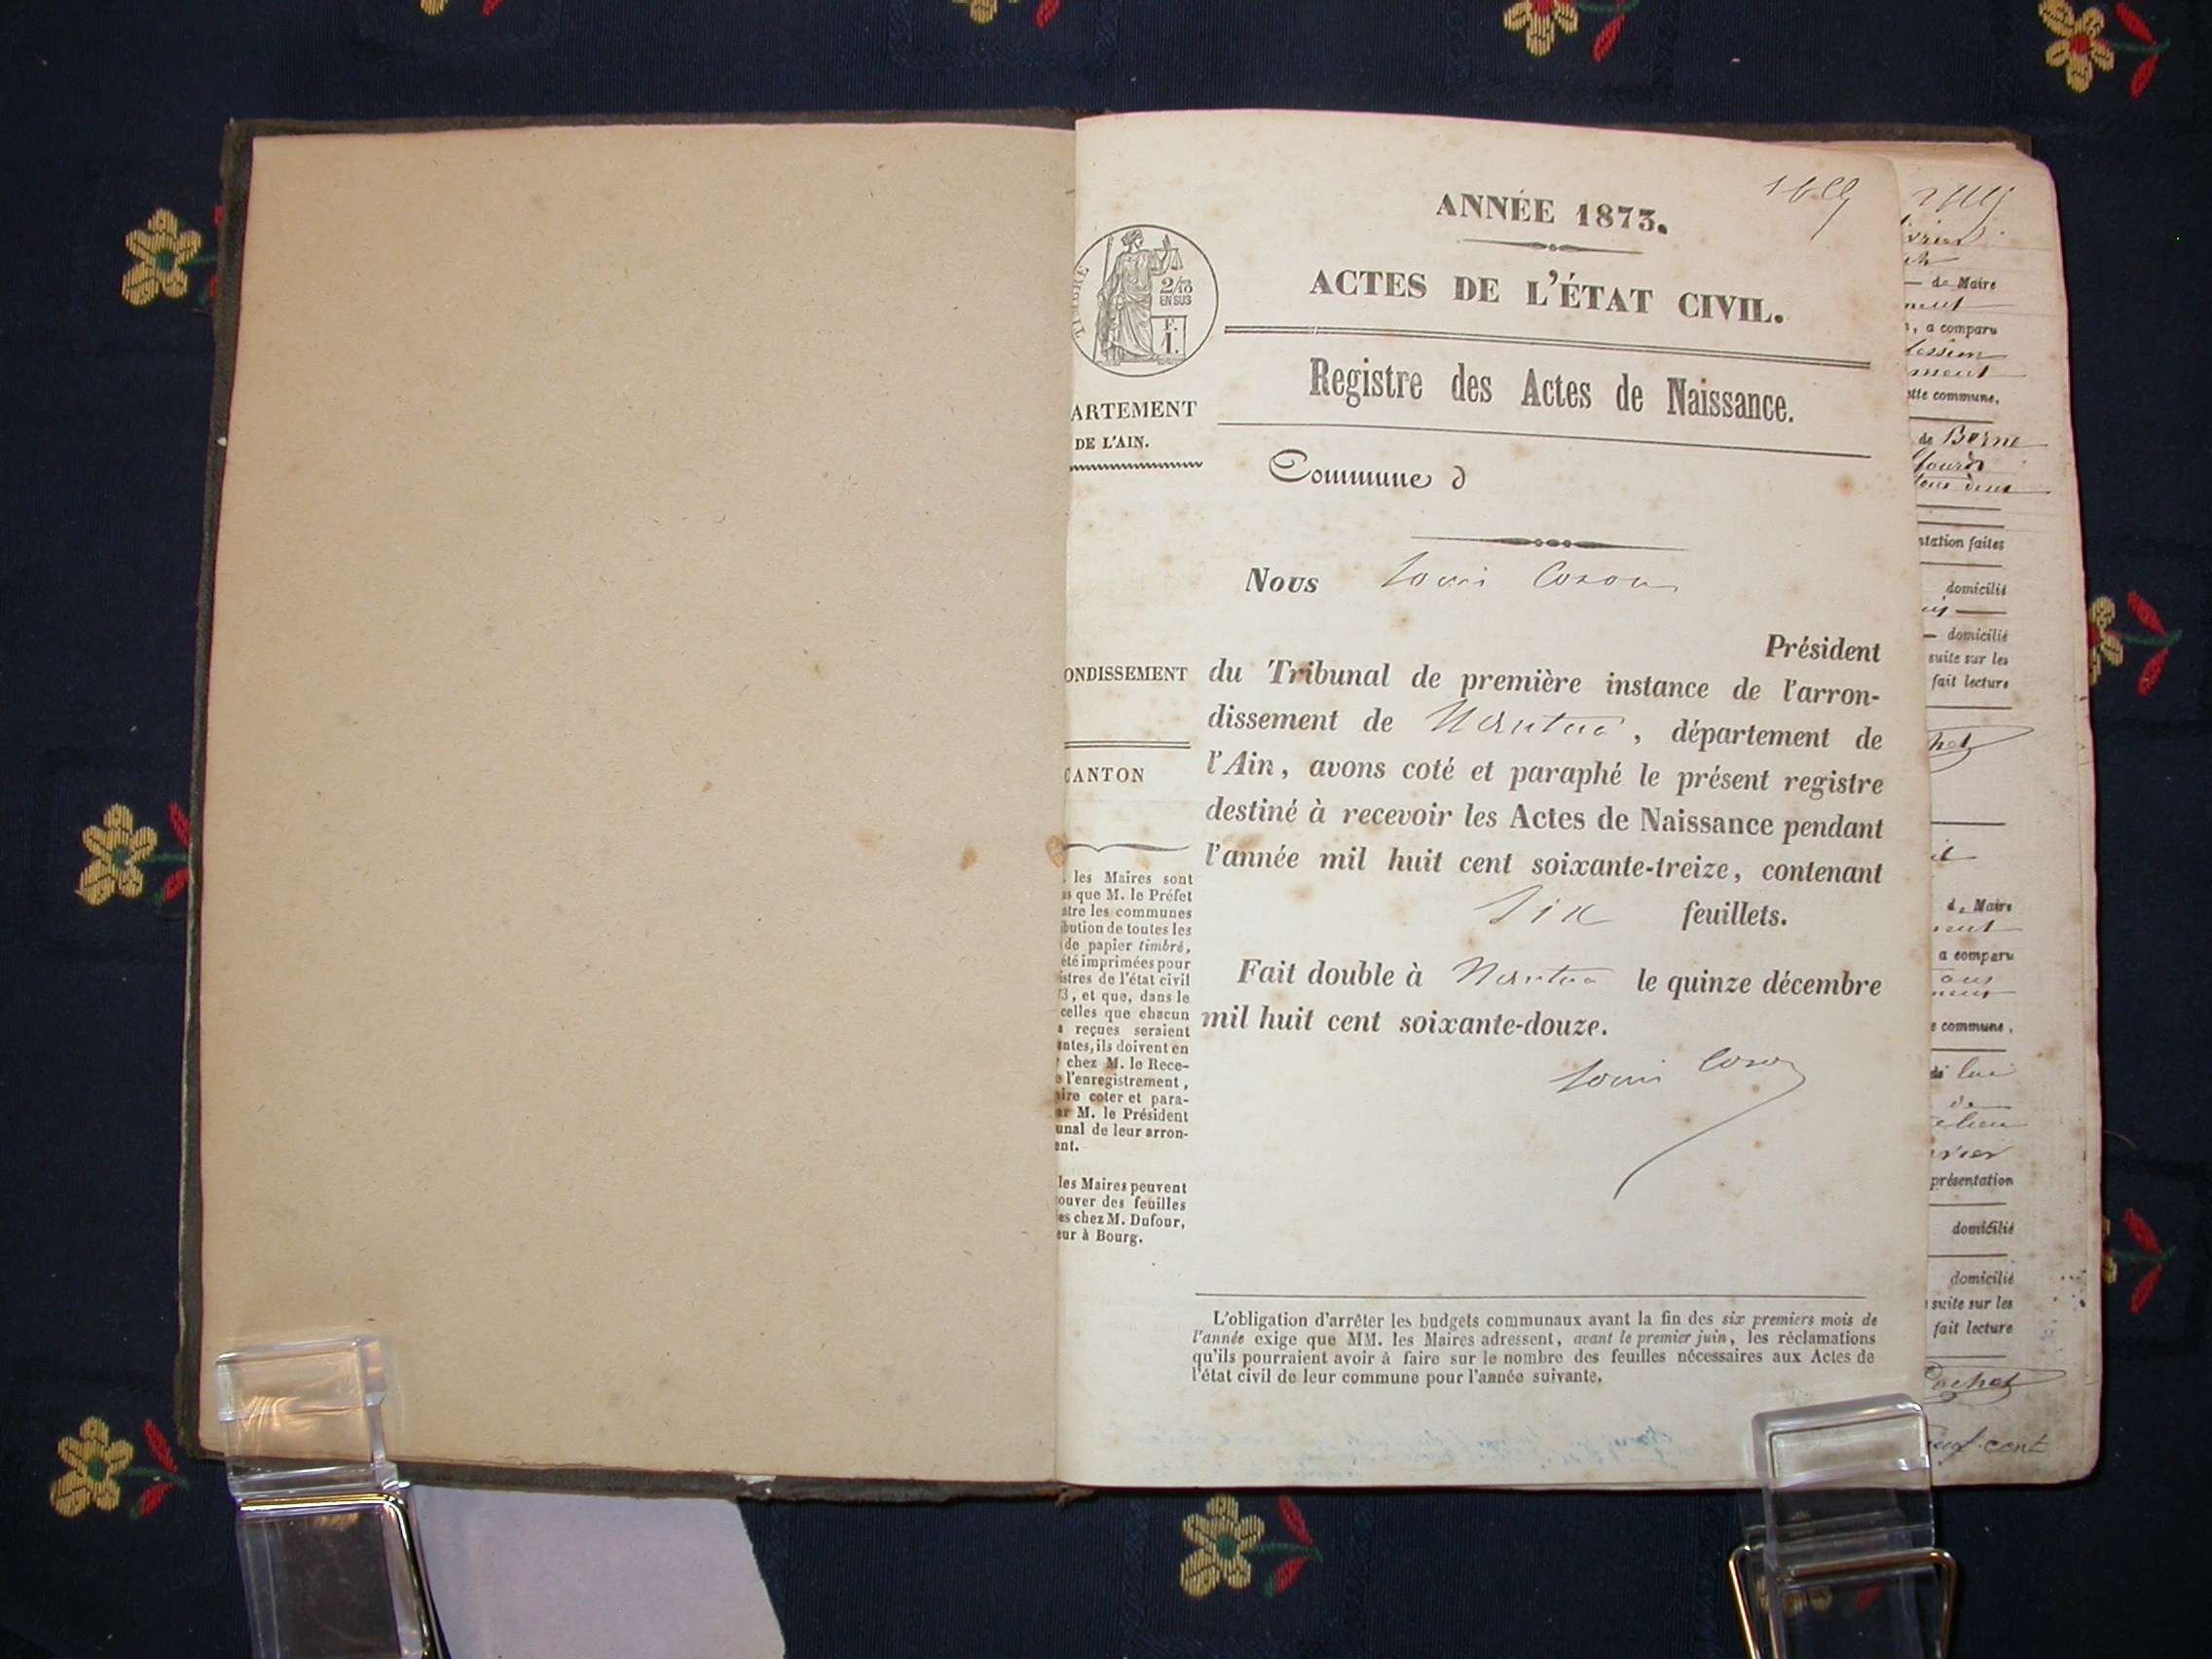 ANNÉE 1873.
ACTES DE L'ÉTAT CIVIL.
TIMBRE
2/10
EN SUS
F.
1.
Registre des Actes de Naissance.
ARTEMENT
DE L'AIN.
Commune d
Nous Louis Coron
Président
ONDISSEMENT
du Tribunal de première instance de l'arron-
dissement de Nantua, département de
CANTON
l'Ain, avons coté et paraphé le présent registre
destiné à recevoir les Actes de Naissance pendant
l'année mil huit cent soixante-treize, contenant
Six feuillets.
Fait double à Nantua le quinze décembre
mil huit cent soixante-douze.
Louis Coron
. les Maires sont
s que M. le Préfet
tre les communes
bution de toutes les
de papier timbré,
été imprimées pour
istres de l'état civil
3, et que, dans le
celles que chacun
reçues seraient
ntes, ils doivent en
chez M. le Rece-
e l'enregistrement,
ire coter et para-
ar M. le Président
unal de leur arron-
ent.
les Maires peuvent
ouver des feuilles
es chez M. Dufour,
eur à Bourg.
L'obligation d'arrêter les budgets communaux avant la fin des six premiers mois de
l'année exige que MM. les Maires adressent, avant le premier juin, les réclamations
qu'ils pourraient avoir à faire sur le nombre des feuilles nécessaires aux Actes de
l'état civil de leur commune pour l'année suivante.
de Maire
, a comparu
tte commune,
de Berne
tous deux
ntation faites
domicilié
domicilié
suite sur les
fait lecture
de Maire
a comparu
e commune,
de lui
de
présentation
domicilié
domicilié
suite sur les
fait lecture
Cochet
cent